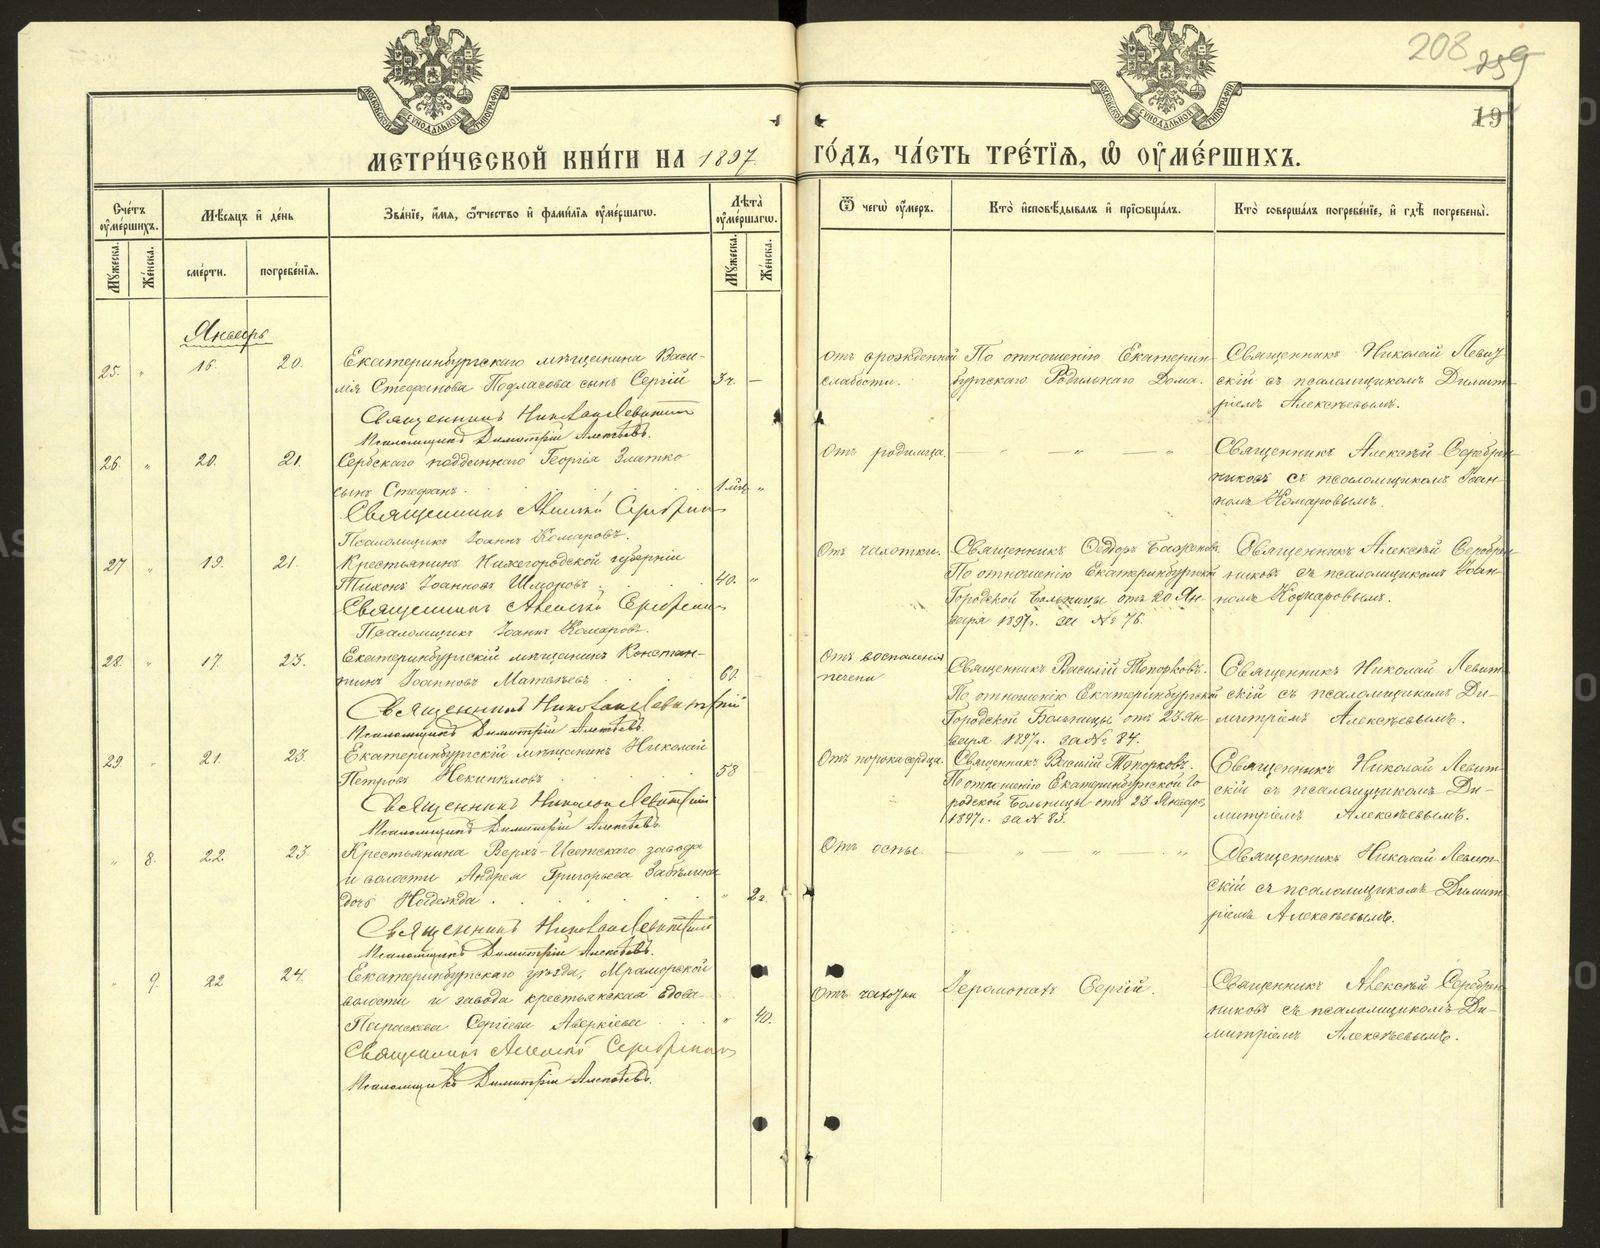 208 259
19
МЕТРИ́ЧЕСКОЙ КНИ́ГИ НА 1897 ГО́ДЪ, ЧА́СТЬ ТРЕ́ТІѦ, Ѡ҆ ОУ҆МЕ́РШИХЪ.
Сче́тъ оу҆ме́ршихъ.
Мѣ́сяцъ и҆ де́нь
Зва́нїе, и҆́мя, ѻ҆́тчество и҆ фами́лїя оу҆ме́ршагѡ.
Лѣ́та оу҆ме́ршагѡ.
Ѿ чегѡ̀ оу҆́меръ.
Кто̀ и҆сповѣ́дывалъ и҆ прїѡбща́лъ.
Кто̀ соверша́лъ погребе́нїе, и҆ гдѣ̀ погребены̀.
Му́жеска.
Же́нска.
сме́рти.
погребе́нїя.
Му́жеска.
Же́нска.
Январь
25. " 16. 20. Екатеринбургскаго мѣщанина Васи-
лія Стефанова Подласова сынъ Сергій 3 ч. —
Священникъ Николай Левитскій
Псаломщикъ Димитрій Алексѣевъ.
отъ врожденной
слабости.
По отношенію Екатерин-
бургскаго Родильнаго Дома.
Священникъ Николай Левит-
скій съ псаломщикомъ Димит-
ріемъ Алексѣевымъ.
26. " 20. 21. Сербскаго подданнаго Георгія Златко
сынъ Стефанъ. 1 мѣс. "
Священникъ Алексій Серебрен
Псаломщикъ Іоаннъ Комаровъ.
Отъ родимца. — " " — "
Священникъ Алексѣй Серебрен-
никовъ съ псаломщикомъ Іоан-
номъ Комаровымъ.
27 " 19. 21. Крестьянинъ Нижегородской губерніи
Тихонъ Іоанновъ Шмаровъ. 40. "
Священникъ Алексій Серебрен
Псаломщикъ Іоаннъ Комаровъ.
Отъ чахотки.
Священникъ Ѳеодоръ
По отношенію Екатеринбургской
Городской Больницы отъ 20 Ян-
варя 1897 г. за № 76.
Священникъ Алексѣй Серебрен-
никовъ съ псаломщикомъ Іоан-
номъ Комаровымъ.
28. " 17. 23. Екатеринбургскій мѣщанинъ Констан-
тинъ Іоанновъ Матвѣевъ 60.
Священникъ Николай Левитскій
Псаломщикъ Димитрій Алексѣевъ.
Отъ воспаленія
печени
Священникъ Василій Топорковъ.
По отношенію Екатеринбургской
Городской Больницы отъ 23 Ян-
варя 1897 г. за № 84.
Священникъ Николай Левит-
скій съ псаломщикомъ Ди-
митріемъ Алексѣевымъ.
29. " 21. 23. Екатеринбургскій мѣщанинъ Николай
Петровъ Некипѣловъ 58
Священникъ Николай Левитскій
Псаломщикъ Димитрій Алексѣевъ.
Отъ порока сердца.
Священникъ Василій Топорковъ.
По отношенію Екатеринбургской Го-
родской Больницы отъ 23 Января
1897 г. за № 83.
Священникъ Николай Левит-
скій съ псаломщикомъ Ди-
митріемъ Алексѣевымъ.
" 8. 22. 23. Крестьянина Верхъ-Исетскаго завода
и волости Андрея Григорьева Забѣлина
дочь Надежда. " 2 г.
Священникъ Николай Левитскій
Псаломщикъ Димитрій Алексѣевъ.
Отъ оспы. — " " — "
Священникъ Николай Левит-
скій съ псаломщикомъ Димит-
ріемъ Алексѣевымъ.
" 9. 22 24. Екатеринбургскаго уѣзда, Мраморской
волости и завода крестьянская вдова
Параскева Сергіева Аверкіева " 40.
Священникъ Алексій Серебренник
Псаломщикъ Димитрій Алексѣевъ.
Отъ чахотки
Іеромонахъ Сергій.
Священникъ Алексѣй Серебрен-
никовъ съ псаломщикомъ Ди-
митріемъ Алексѣевымъ.